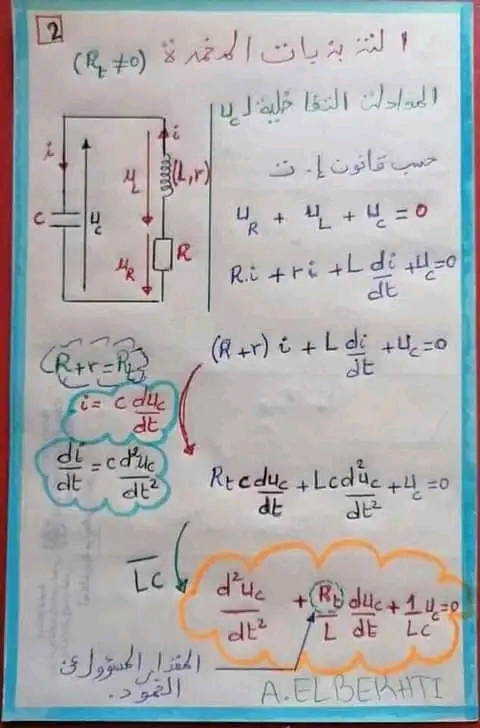 2
التذبذبات المخمدة
(Rₜ ≠ 0)
المعادلة التفاضلية لـ u_c
حسب قانون إ. ت
u_R + u_L + u_c = 0
R.i + ri + L di/dt + u_c = 0
(R+r) i + L di/dt + u_c = 0
i
i
u_L
(L,r)
C
u_c
u_R
R
R+r=Rₜ
i = c du_c/dt
di/dt = c d²u_c/dt²
Rₜ c du_c/dt + Lc d²u_c/dt² + u_c = 0
LC
d²u_c/dt² + Rₜ/L du_c/dt + 1/LC u_c = 0
المقدار المسؤول عن
الخمود.
A.ELBEKHTI